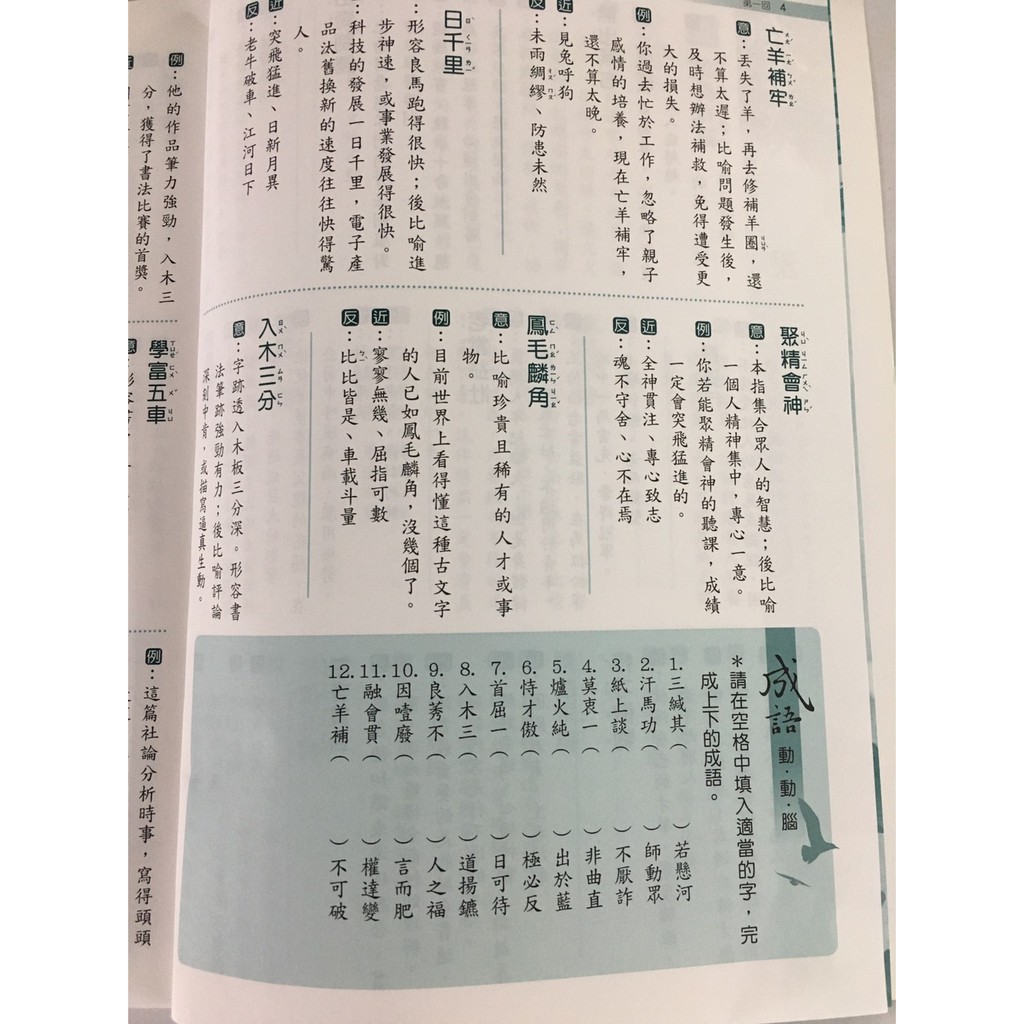 第一回 4
亡羊補牢
意：丟失了羊，再去修補羊圈，還
不算太遲；比喻問題發生後，
及時想辦法補救，免得遭受更
大的損失。
例：你過去忙於工作，忽略了親子
感情的培養，現在亡羊補牢，
還不算太晚。
近：見兔呼狗
反：未雨綢繆、防患未然
日千里
：形容良馬跑得很快；後比喻進
步神速，或事業發展得很快。
：科技的發展一日千里，電子產
品汰舊換新的速度往往快得驚
人。
近：突飛猛進、日新月異
反：老牛破車、江河日下
例：他的作品筆力強勁，入木三
分，獲得了書法比賽的首獎。
聚精會神
意：本指集合眾人的智慧；後比喻
一個人精神集中，專心一意。
例：你若能聚精會神的聽課，成績
一定會突飛猛進的。
近：全神貫注、專心致志
反：魂不守舍、心不在焉
鳳毛麟角
意：比喻珍貴且稀有的人才或事
物。
例：目前世界上看得懂這種古文字
的人已如鳳毛麟角，沒幾個了。
近：寥寥無幾、屈指可數
反：比比皆是、車載斗量
入木三分
意：字跡透入木板三分深。形容書
法筆跡強勁有力；後比喻評論
深刻中肯，或描寫逼真生動。
學富五車
成語動·動·腦
＊請在空格中填入適當的字，完
成上下的成語。
1. 三緘其（ ）若懸河
2. 汗馬功（ ）師動眾
3. 紙上談（ ）不厭詐
4. 莫衷一（ ）非曲直
5. 爐火純（ ）出於藍
6. 恃才傲（ ）極必反
7. 首屈一（ ）日可待
8. 入木三（ ）道揚鑣
9. 良莠不（ ）人之福
10. 因噎廢（ ）言而肥
11. 融會貫（ ）權達變
12. 亡羊補（ ）不可破
例：這篇社論分析時事，寫得頭頭